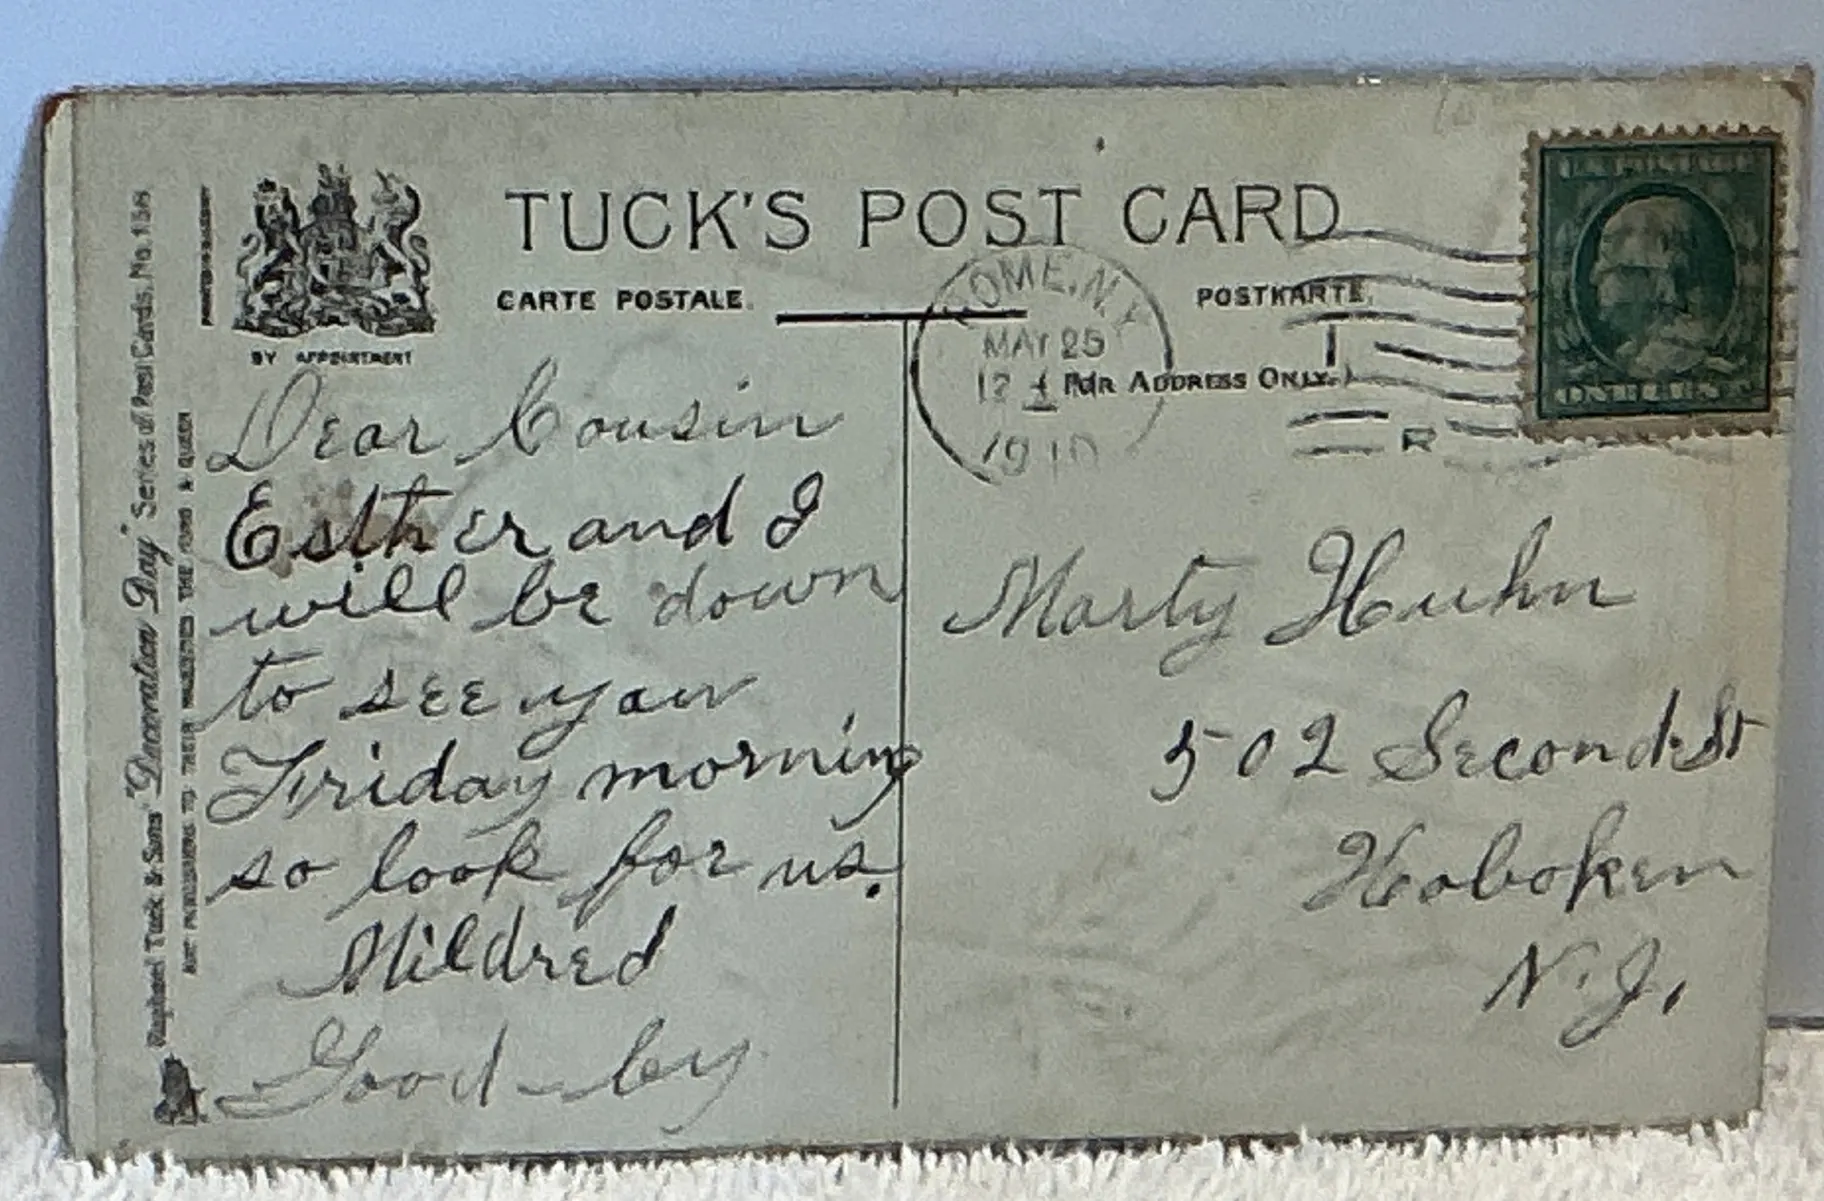 TUCK'S POST CARD
CARTE POSTALE.
POSTKARTE.
BY APPOINTMENT
(FOR ADDRESS ONLY.)
OME, N.Y.
MAY 25
12
1910
R
U.S. POSTAGE
ONE CENT
Dear Cousin
Esther and I
will be down
to see you
Friday morning
so look for us.
Mildred
Good-by
Marty Huhn
502 Second St
Hoboken
N.J.
Raphael Tuck & Sons' "Decoration Day" Series of Post Cards. No. 158
ART PUBLISHERS TO THEIR MAJESTIES THE KING & QUEEN